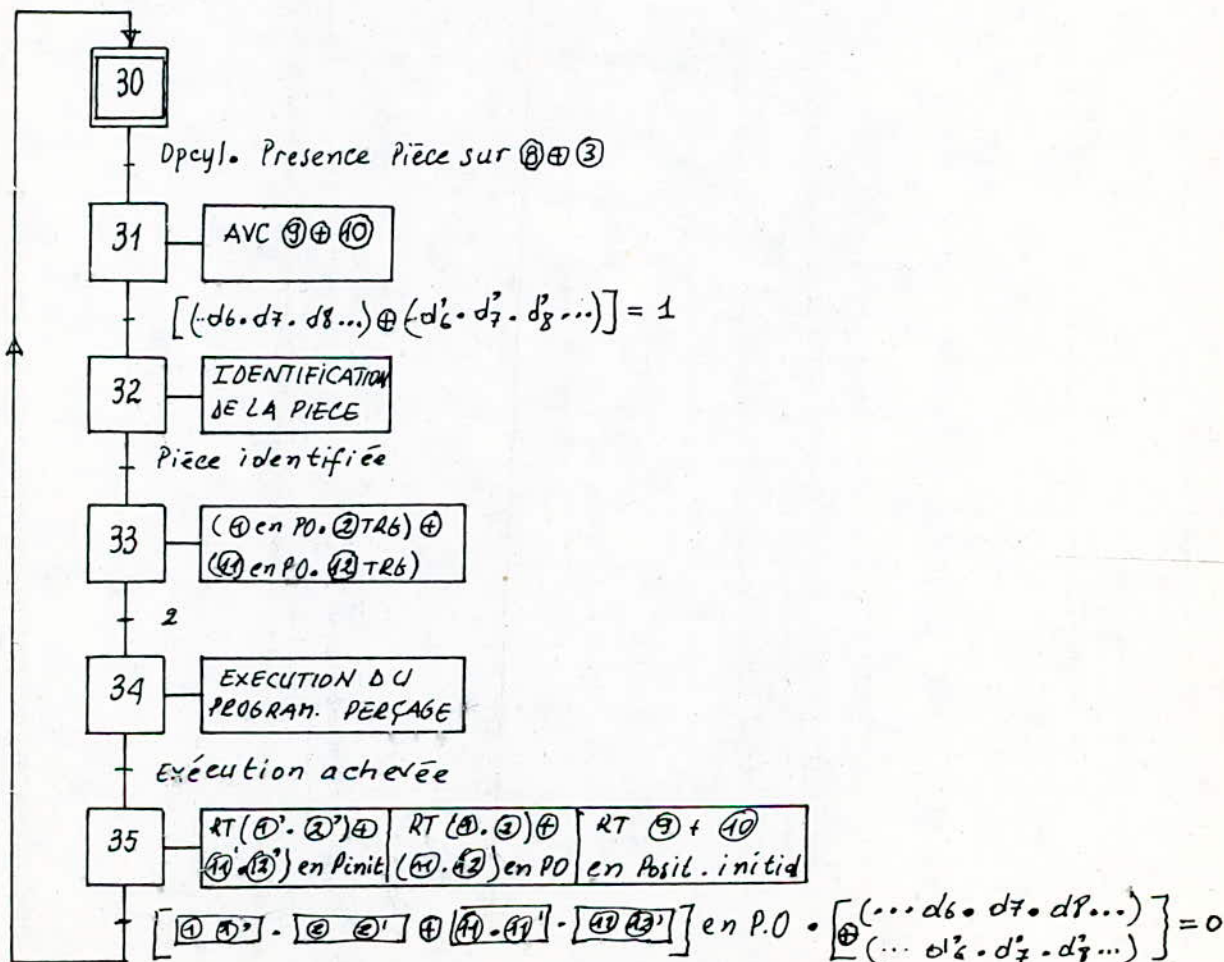 30
Dpcyl. Presence Pièce sur ⑧ ⊕ ③
31
AVC ⑨ ⊕ ⑩
[(..d6.d7.d8...) ⊕ (..d'6.d'7.d'8...)] = 1
32
IDENTIFICATION
DE LA PIECE
Pièce identifiée
33
(① en PO. ② TRG) ⊕
(⑪ en PO. ⑫ TRG)
2
34
EXECUTION DU
PROGRAM. PERÇAGE
Exécution achevée
35
RT (①'. ②') ⊕
⑪'.⑫') en Pinit
RT (①. ②) ⊕
(⑪. ⑫) en PO
RT ⑨ + ⑩
en Posit. initial
② ②' ⊕ ⑪.⑪' en P.O . ⊕ (... d6. d7. d8...) = 0
(... d'6. d'7. d'8...)